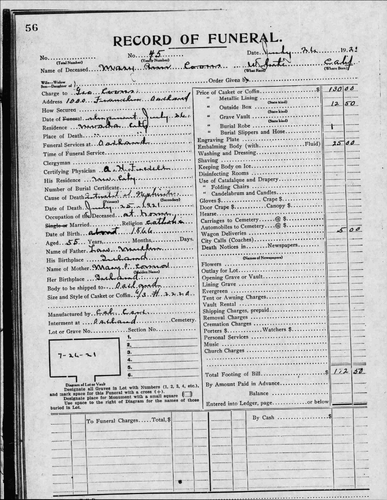 56
RECORD OF FUNERAL.
No. No. 45 Date, July 26 1921
(Total Number) (Yearly Number)
Name of Deceased Mary Ann Coons White Calif
(What Race) (Where Born)
Order Given By
Charge to Geo Coons
Address 1000 Franklin Oakland
How Secured
Date of Funeral July 26.
Residence Nevada City
Place of Death
Funeral Services at Oakland
Time of Funeral Service
Clergyman
Certifying Physician
His Residence Nev City
Number of Burial Certificate
Cause of Death Nephritis
Date of Death July 25 1921
Occupation of the Deceased at home
Single or Married Religion Catholic
Date of Birth about 1866
Aged 55 Years Months, Days.
Name of Father
His Birthplace Ireland
Name of Mother Mary O'Connor
Her Birthplace Ireland
Body to be shipped to Oakland
Size and Style of Casket or Coffin
Manufactured by
Interment at Oakland Cemetery.
Lot or Grave No. Section No.
7-26-21
1.
2.
3.
4.
5.
6.
7.
8.
Diagram of Lot or Vault
Designate all Graves in Lot with Numbers (1, 2, 3, 4, etc.),
and mark space for this Funeral with a cross (+).
Designate place for Monument with a small square
Use space to the right of Diagram for the names of those
buried in Lot.
Price of Casket or Coffin $ 130 00
" Metallic Lining
" Outside Box 12 50
" Grave Vault
" Burial Robe
" Burial Slippers and Hose
Engraving Plate
Embalming Body (with Fluid) 25 00
Washing and Dressing
Shaving
Keeping in Coffin
Disinfecting Rooms
Use of Catafalque and Drapery
" Folding Chairs
" Candelabrum and Candles
Gloves $ Crape $
Door Crape $ Canopy $
Hearse
Carriages to Cemetery @ $
Automobiles to Cemetery @ $
Wagon Deliveries 5 00
City Calls (Coaches)
Death Notices in Newspapers
Flowers
Outlay for Lot
Opening Grave or Vault
Lining Grave
Evergreen
Tent or Awning Charges
Vault Rental
Shipping Charges, prepaid
Removal Charges
Cremation Charges
Porters $ Watchers $
Personal Services
Music
Church Charges
Total Footing of Bill $ 172 50
By Amount Paid in Advance
Balance
Entered into Ledger, page or below.
To Funeral Charges Total, $ By Cash $